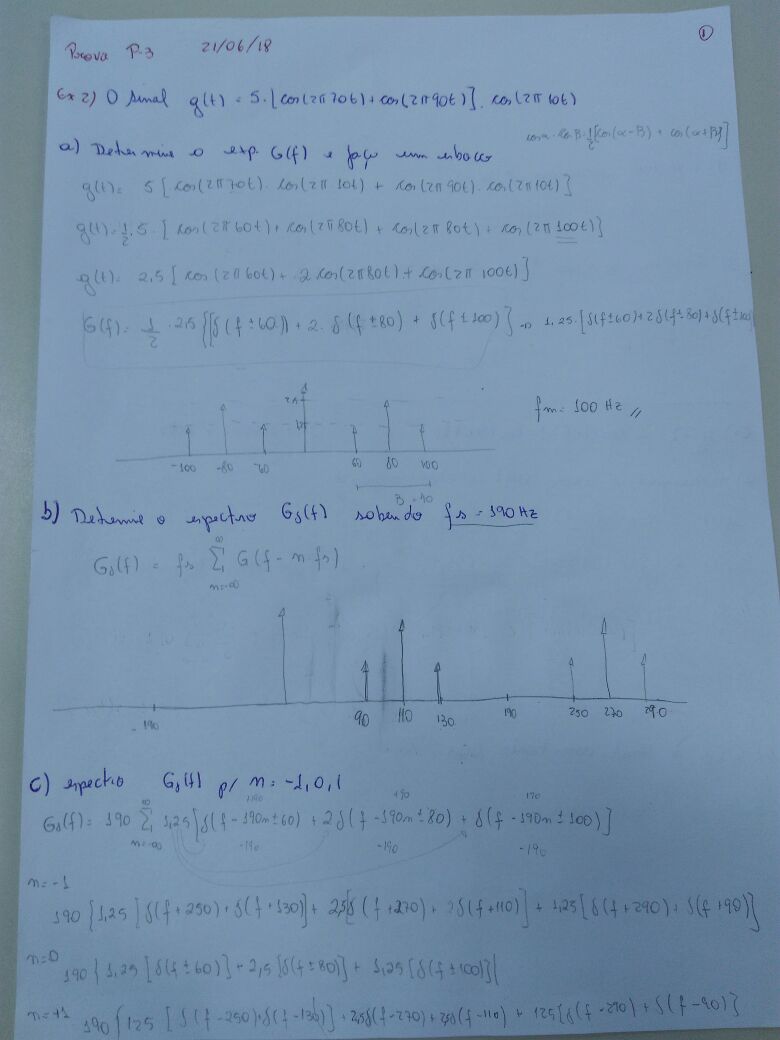 ①
Prova P.3 21/06/18
Ex 2) O sinal g(t) = 5.[cos(2π70t)+cos(2π90t)].cos(2π10t)
cosα.cosβ.½[cos(α-β)+cos(α+β)]
a) Determine o exp. G(f) e faça um esboço
g(t)= 5[cos(2π70t).cos(2π10t) + cos(2π90t).cos(2π10t)]
g(t)=½.5.[cos(2π60t)+cos(2π80t)+cos(2π80t)+cos(2π100t)]
g(t)= 2,5[cos(2π60t)+2cos(2π80t)+cos(2π100t)]
G(f)= ½.2,5{[δ(f±60)]+2.δ(f±80)+δ(f±100)} ⇒ 1,25.[δ(f±60)+2δ(f±80)+δ(f±100)
fm= 100 Hz //
-100 -80 -60 60 80 100
B=40
b) Determine o espectro Gδ(f) sabendo fs=190Hz
Gδ(f) = fs ∑ G(f-nfs)
n=-∞ ∞
-190 90 110 130 190 250 270 290
c) espectro Gδ(f) p/ n=-1,0,1
+190 +190 190
Gδ(f)= 190 ∑ 1,25[δ(f-190n±60)+2δ(f-190n±80)+δ(f-190n±100)]
n=-∞ ∞ -190 -190 -190
n=-1
190{1,25[δ(f+250)+δ(f+130)]+2,5[δ(f+270)+2δ(f+110)]+1,25[δ(f+290)+δ(f+90)]}
n=0
190{1,25[δ(f±60)]+2,5[δ(f±80)]+1,25[δ(f±100)]}
n=+1
190{125[δ(f-250)+δ(f-130)]+2,5δ(f-270)+2,5δ(f-110)+125[δ(f-290)+δ(f-90)]}